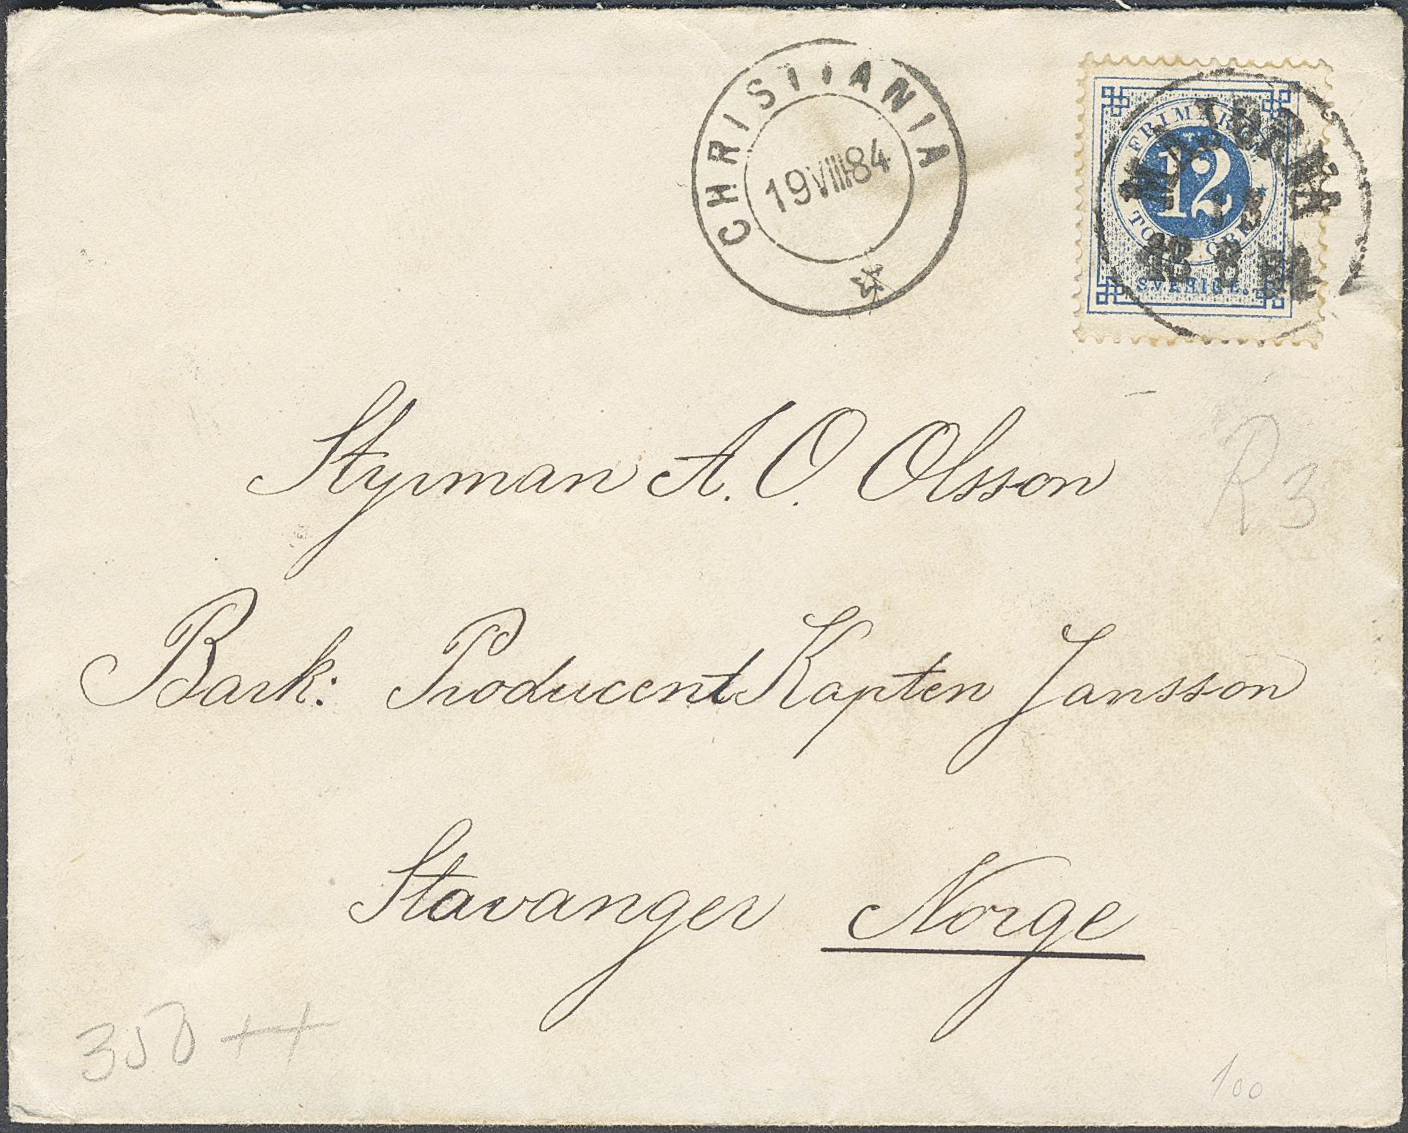 CHRISTIANIA
19 VIII 84
FRIMÄRKE
12
TOLF ÖRE
SVERIGE.
MAJORNA
18 8 84
Styrman A. O. Olsson
R 3
Bark: Producent Kapten Jansson
Stavanger Norge
350 ++
100